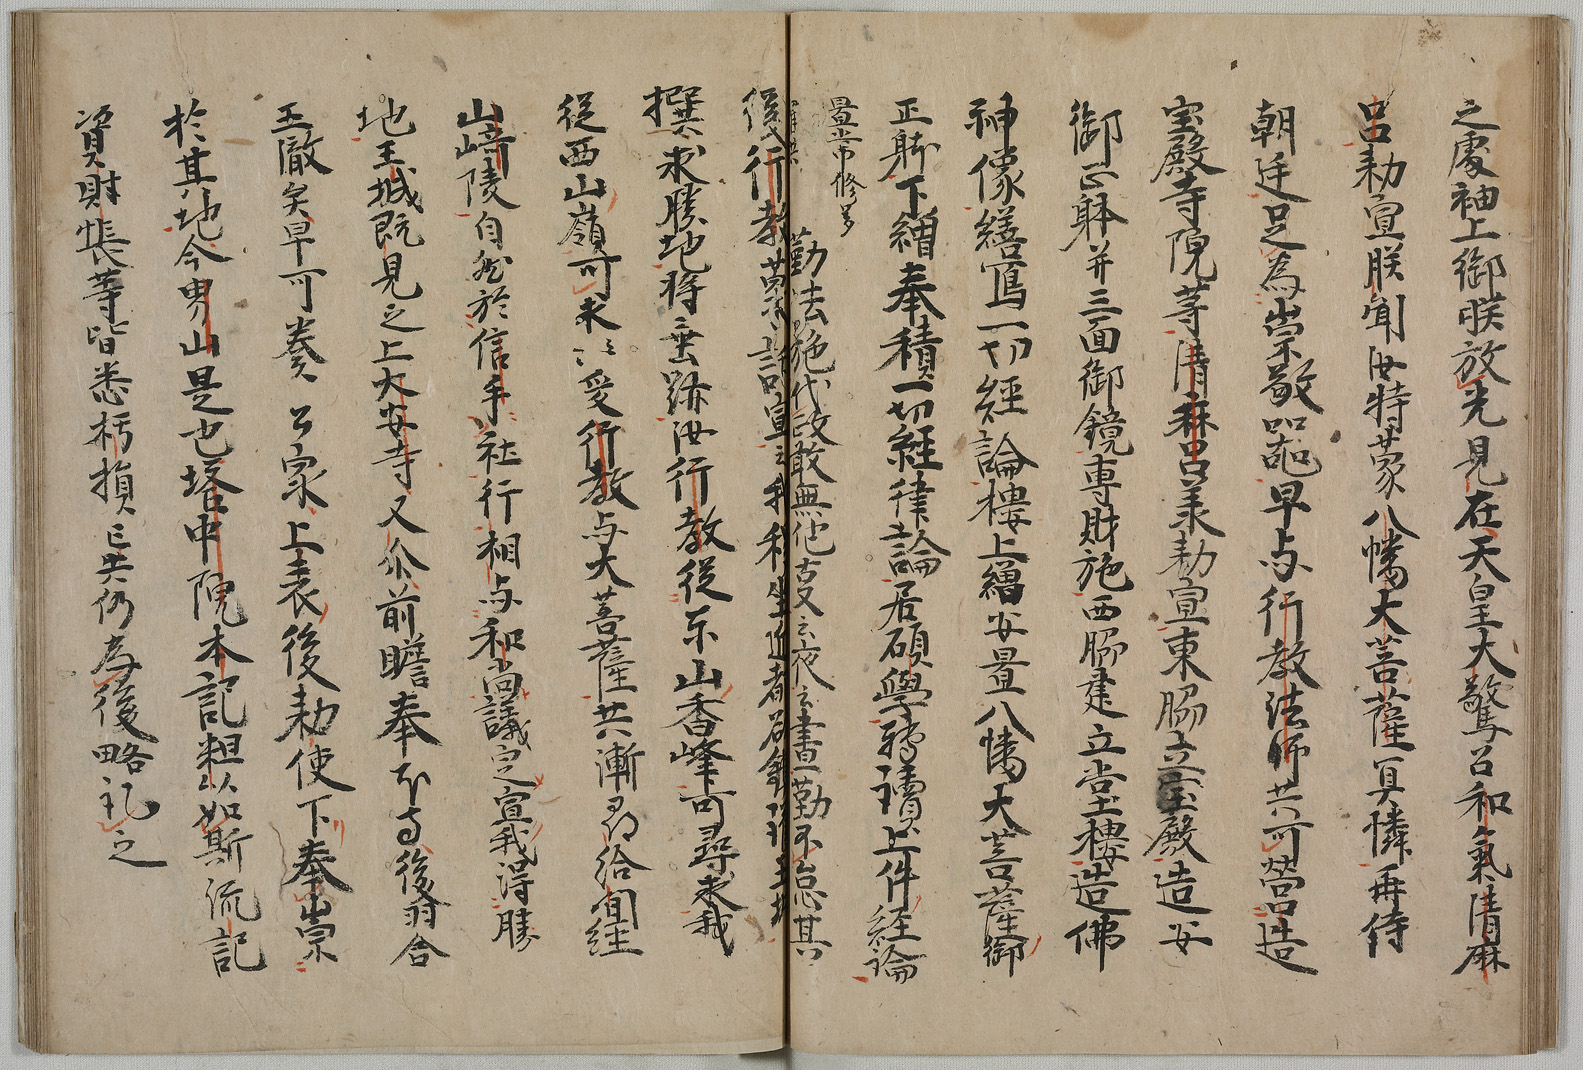 之處袖上御眹放光見在天皇大驚召和氣清麻
呂勅宣朕聞汝特蒙八幡大菩薩冥憐再侍
朝廷足為崇敬早与行教法師共可營造
宝殿寺院等清麻呂奉勅宣東脇立宝殿造安
御正躰并三面御鏡専財施西脇建立堂樓造佛
神像繕寫一切經論樓上繒安置八幡大菩薩御
正躰下繒奉積一切経律論居碩學轉讀上件経論
置常修多
勤法施代改敢無他又云夜云晝勤不怠其
後行教
撰求勝地将垂跡汝行教従東山香峰可尋求我
従西山嶺可求受行教与大菩薩共漸尋給間経
山﨑陵自然於信手社行相与和尚議定之宣我得勝
地王城既見之上大安寺又以前瞻奉後羽合
玉敵矣早可奏公家上表後勅使下奉崇
於其地今男山是也塔中院本記粗以如斯流記
資財帳等皆悉朽損已失仍為後略記之